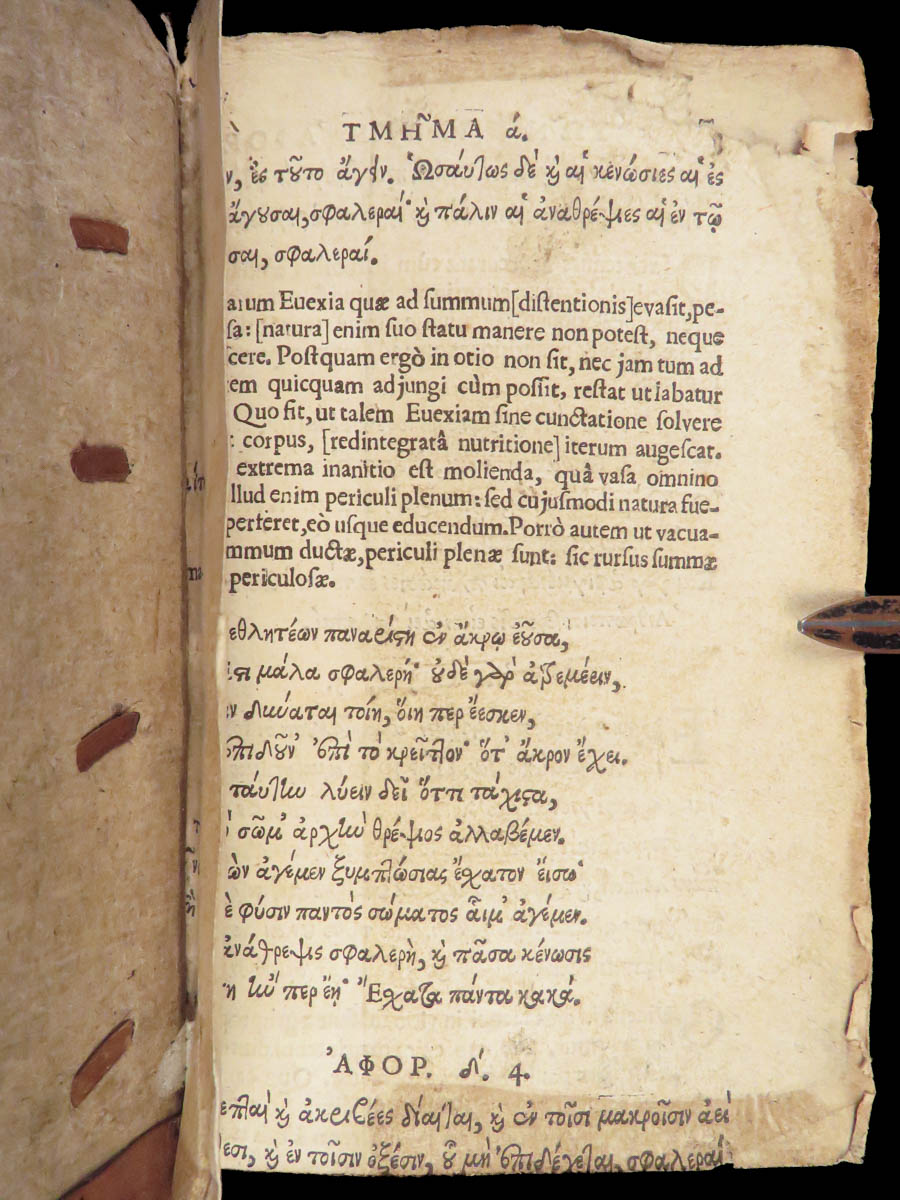 ΤΜΗ͂ΜΑ ά.
ν, ἐς τοῦτο ἄγειν. Ὡσαύτως δὲ καὶ αἱ κενώσιες αἱ ἐς
ἄγουσαι, σφαλεραί· καὶ πάλιν αἱ ἀναθρέψιες αἱ ἐν τῷ
σαι, σφαλεραί.
arum Euexia quæ ad summum [distentionis] evasit, pe-
sa: [natura] enim suo statu manere non potest, neque
cere. Postquam ergò in otio non sit, nec jam tum ad
rem quicquam adjungi cùm possit, restat ut labatur
Quo fit, ut talem Euexiam sine cunctatione solvere
: corpus, [redintegratâ nutritione] iterum augescat.
extrema inanitio est molienda, quâ vasa omnino
llud enim periculi plenum: sed cujusmodi natura fue-
perferet, eò usque educendum. Porrò autem ut vacua-
mmum ductæ, periculi plenæ sunt: sic rursus summæ
periculosæ.
εθλητέων παναρίστη ἐν ἄκρῳ ἐοῦσα,
μάλα σφαλερή· οὐδὲ γὰρ ἀτρεμέειν,
ν δύναται τοίη, ὅιη περ ἔεσκεν,
ἐπιδοῦν' ἐπὶ τὸ κρεῖττον· ὅτ' ἄκρον ἔχει.
ταύτην λύειν δεῖ ὅττι τάχιστα,
σῶμ' ἀρχὴν θρέψιος ἀλλαβέμεν.
ὼν ἀγέμεν ξυμπτώσιας ἔσχατον ἔισω·
ὲ φύσιν παντὸς σώματος αἷμ' ἀγέμεν.
ἀνάθρεψις σφαλερὴ, καὶ πᾶσα κένωσις
η ἢν περ ἔῃ· Ἔσχατα πάντα κακά.
ἈΦΟΡ. δ. 4.
επταὶ καὶ ἀκριβέες δίαιται, καὶ ἐν τοῖσι μακροῖσιν ἀεὶ
εσι, καὶ ἐν τοῖσιν ὀξέσιν, οὗ μὴ ἐπιδέχεται, σφαλεραί